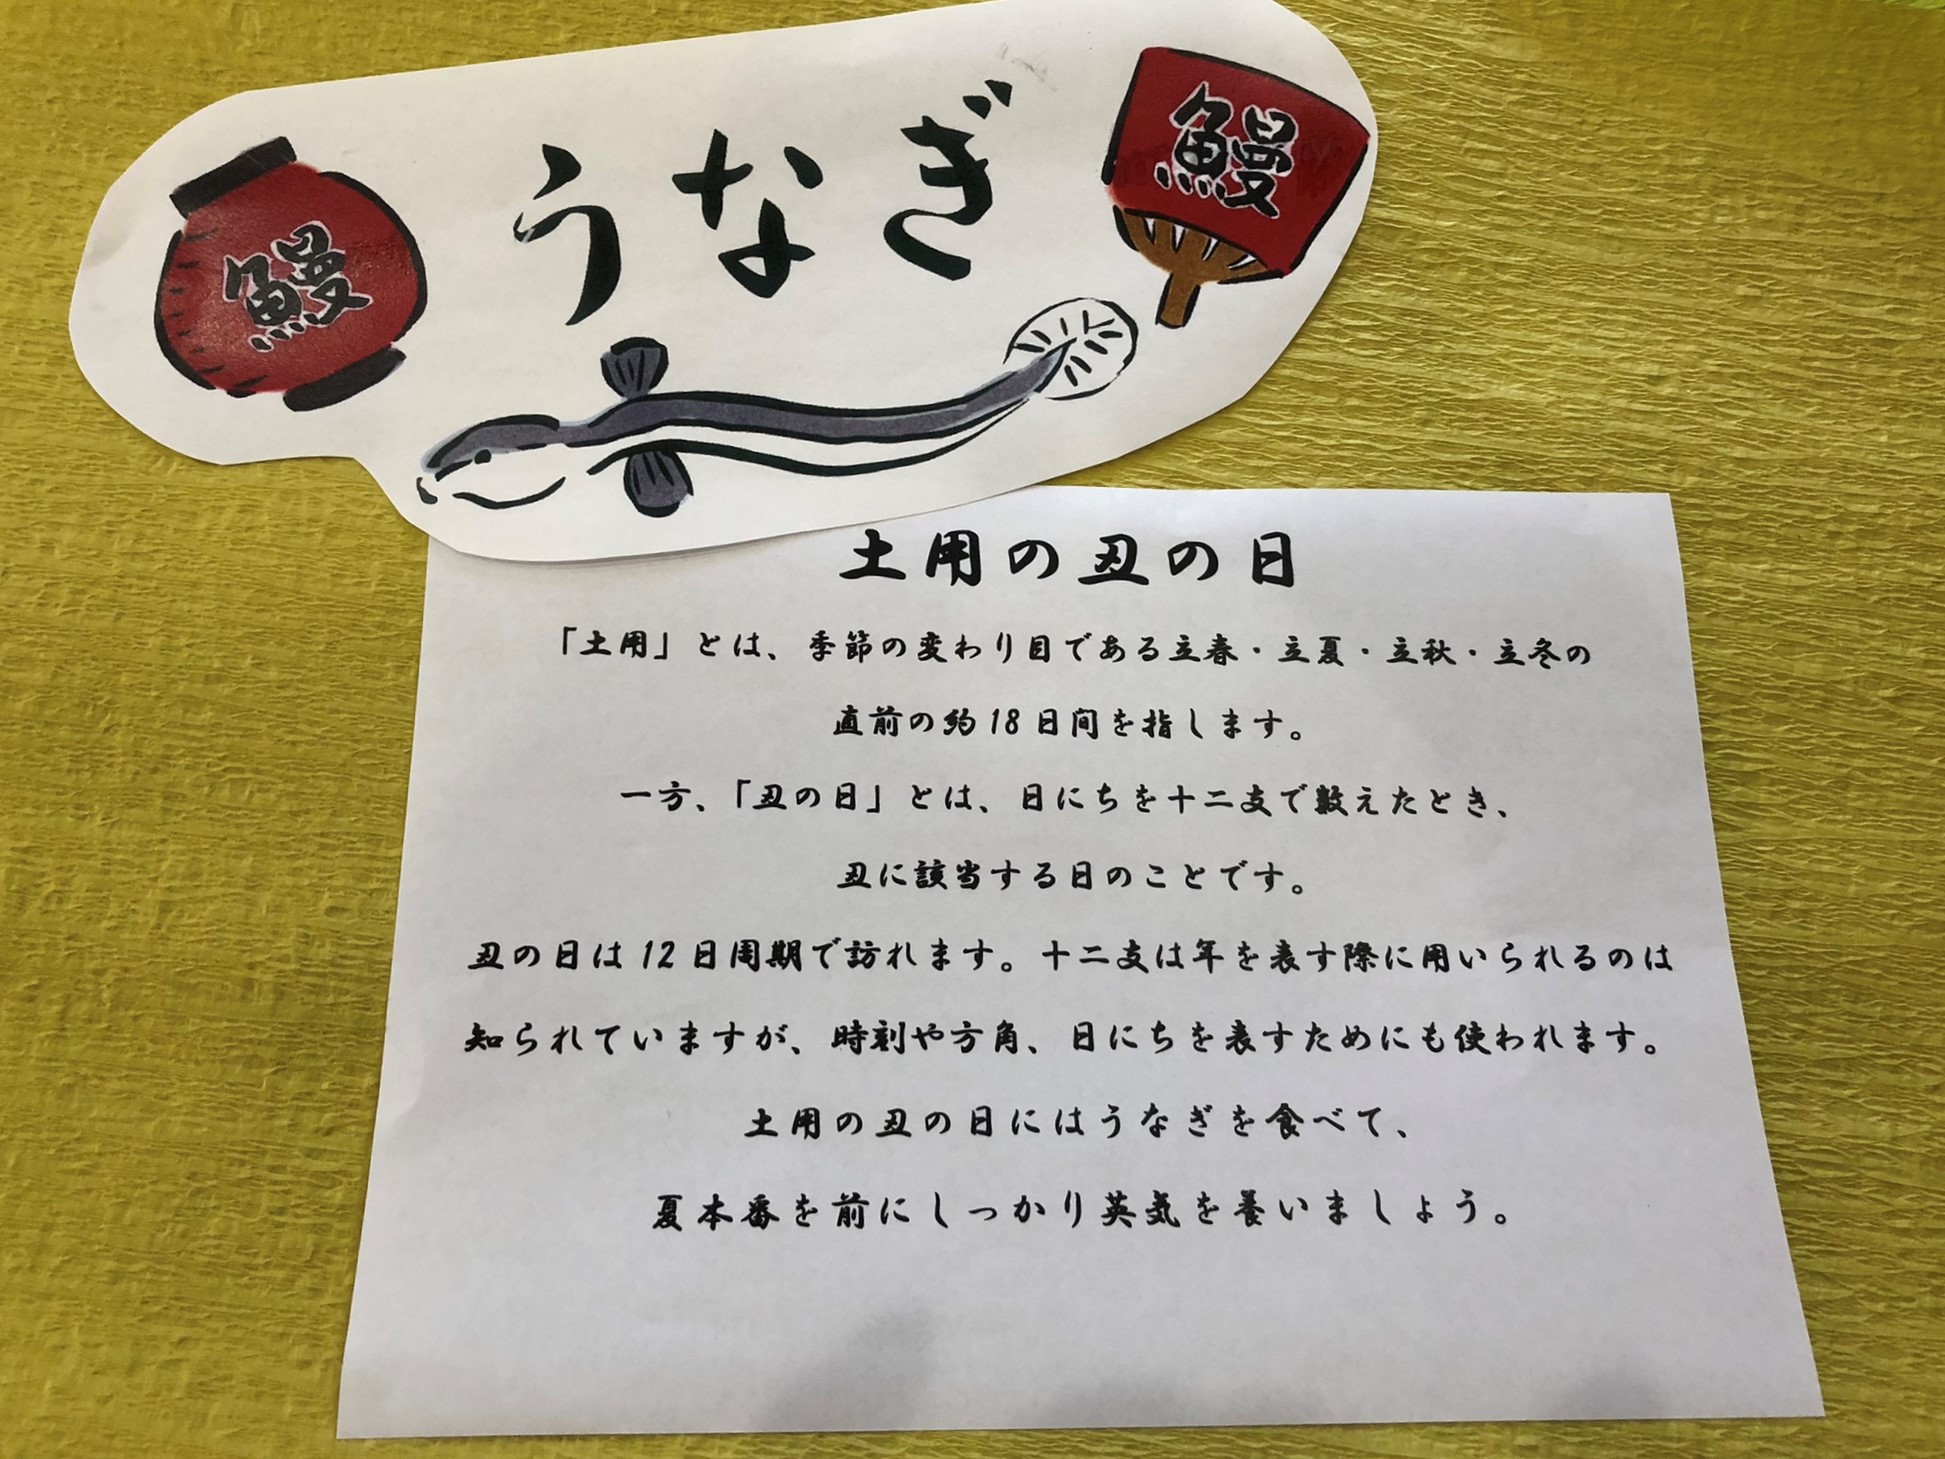 うなぎ
鰻
鰻
土用の丑の日
「土用」とは、季節の変わり目である立春・立夏・立秋・立冬の
直前の約18日間を指します。
一方、「丑の日」とは、日にちを十二支で数えたとき、
丑に該当する日のことです。
丑の日は12日周期で訪れます。十二支は年を表す際に用いられるのは
知られていますが、時刻や方角、日にちを表すためにも使われます。
土用の丑の日にはうなぎを食べて、
夏本番を前にしっかり英気を養いましょう。